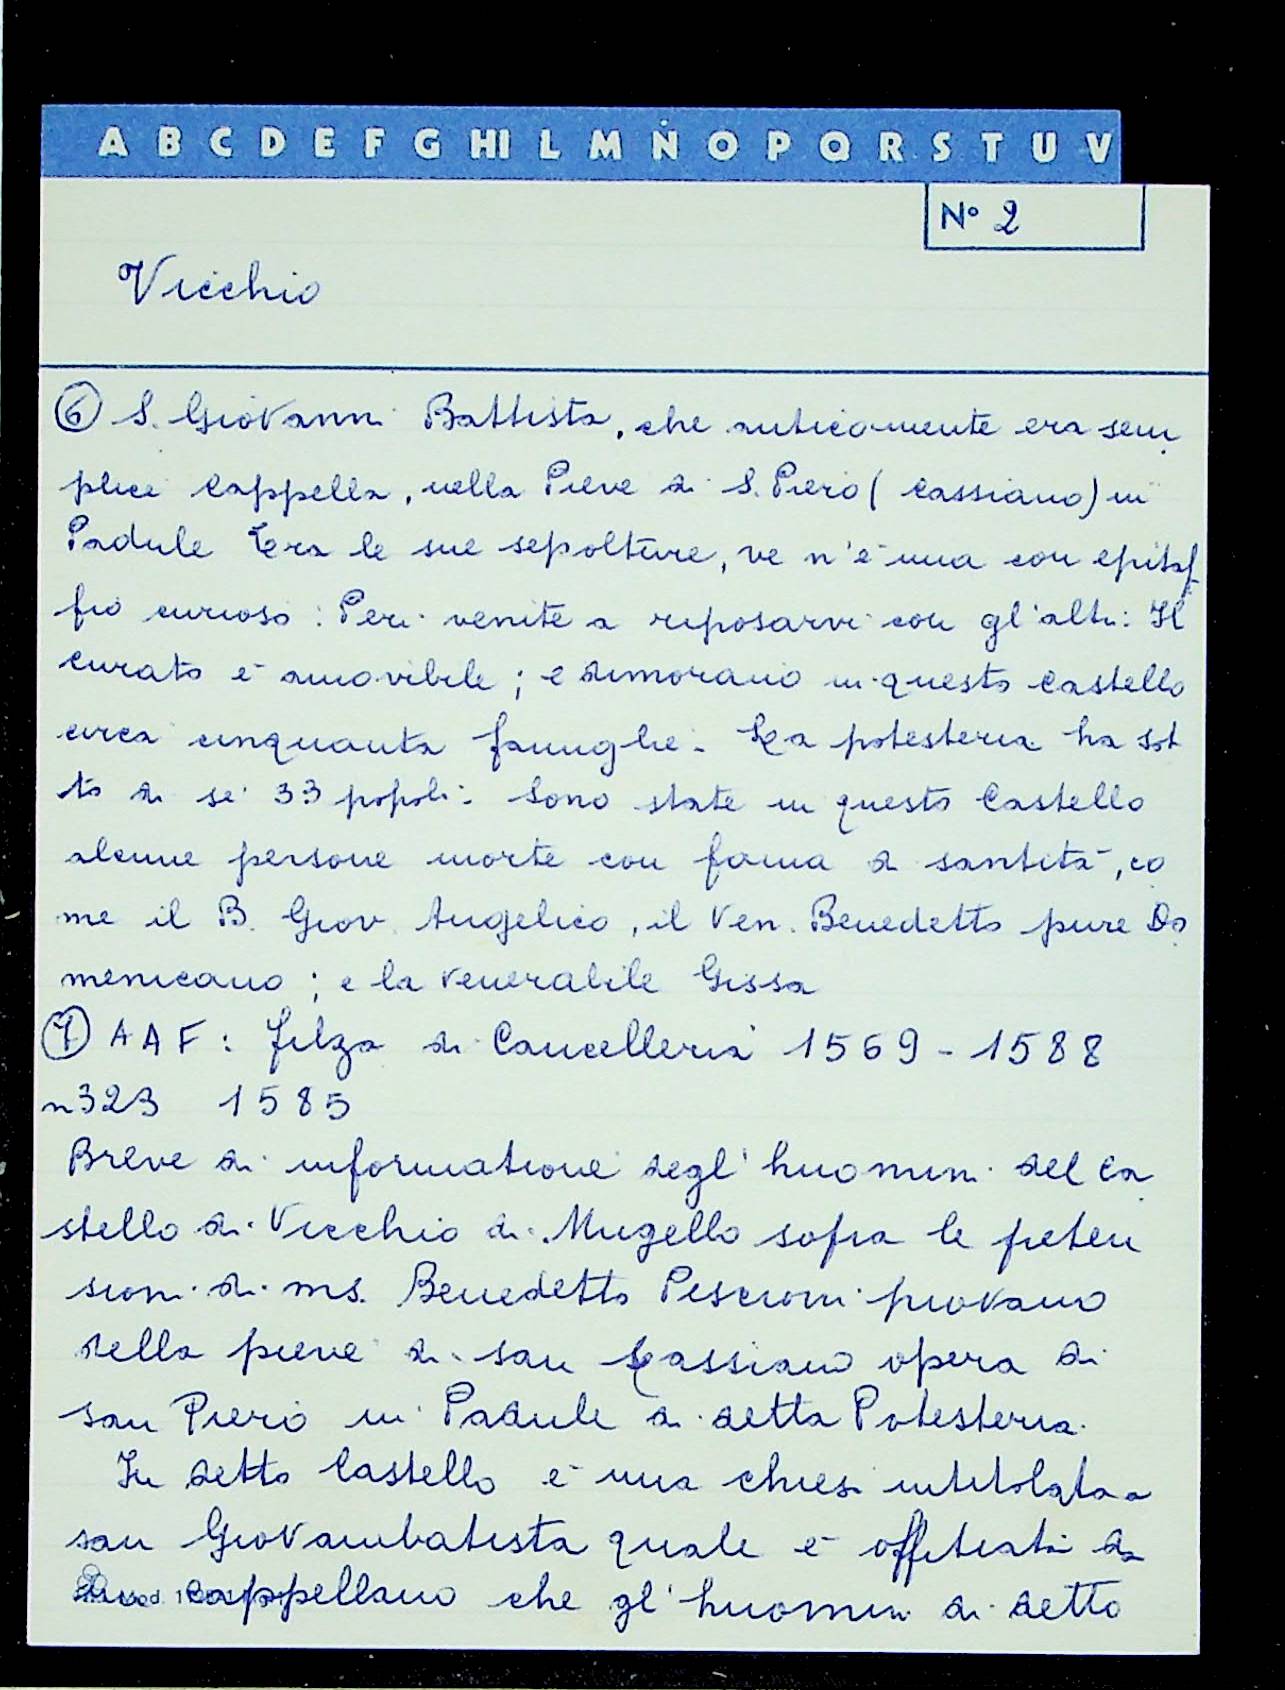 A B C D E F G HI L M N O P Q R S T U V
N° 2
Vicchio
⑥ S. Giovanni Battista, che anticamente era sem
plice Cappella, nella Pieve di S. Piero (Cassiano) in
Padule Tra le sue sepolture, ve n'è una con epitaf
fio curioso: Peri venite a riposarvi con gl'altri: Il
curato è amovibile; e dimorano in questo castello
circa cinquanta famiglie. La potesteria ha sot
to di sé 33 popoli. Sono state in questo Castello
alcune persone morte con fama di santità, co
me il B. Giov. Angelico, il Ven. Benedetto pure Do
menicano; e la venerabile Gissa
⑦ AAF: filza di Cancelleria 1569-1588
n323 1585
Breve di informatione degl'huomini del Ca
stello di Vicchio di Mugello sopra le preten
sioni di ms. Benedetto Pescioni piovano
della pieve di san Cassiano opera di
san Piero in Padule di detta Potesteria.
In detto Castello è una chiesa intitolata a
san Giovambatista quale è offitiata da
cappellano che gl'huomini di detto